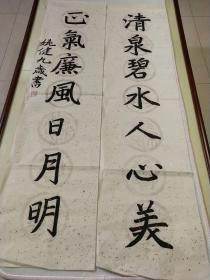 清泉碧水人心美
正氣廉風日月明
姚健九歲書